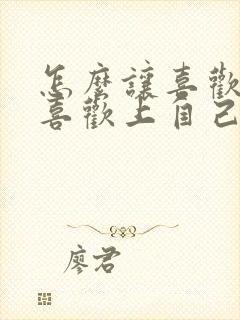 怎麼讓喜歡
喜歡上自己
廖君